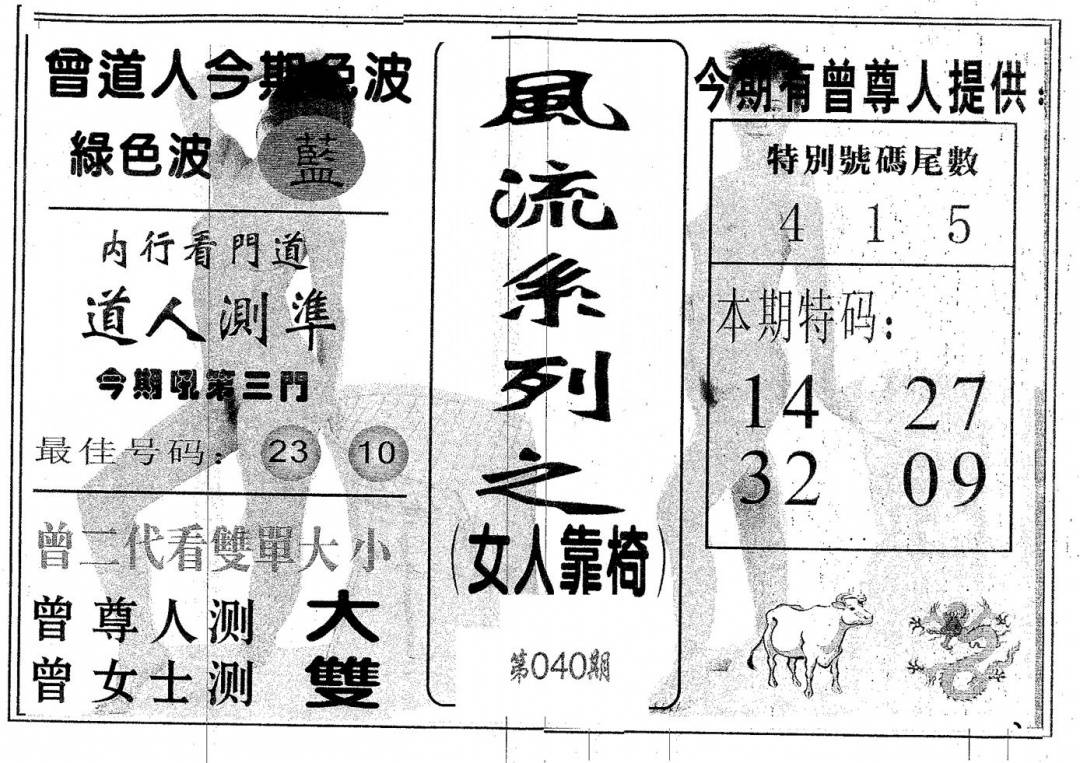 曾道人今期色波
綠色波 藍
内行看門道
道人測準
今期吼第三門
最佳号码: 23 10
曾二代看雙單大小
曾尊人测 大
曾女士测 雙
風流系列之
(女人靠椅)
第040期
今期有曾尊人提供:
特別號碼尾數
4 1 5
本期特码:
14 27
32 09